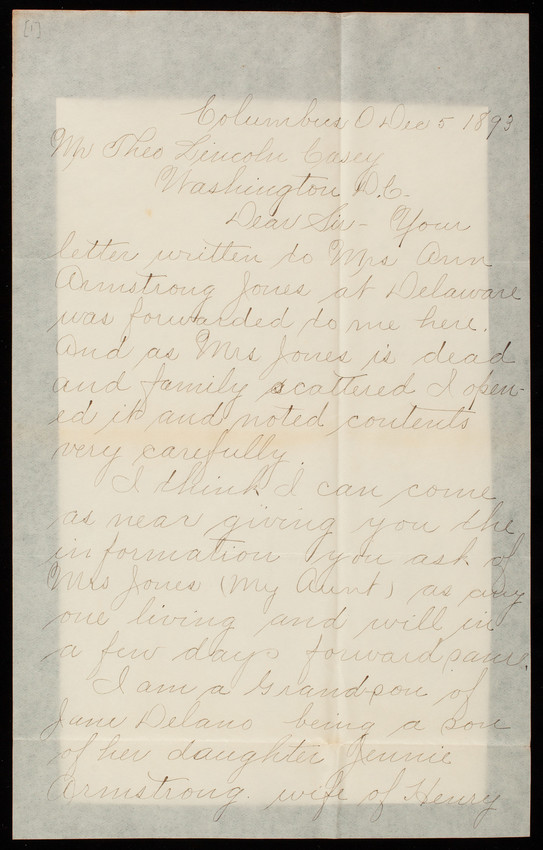 [1]
Columbus O Dec 5 1893
Mr Theo Lincoln Casey
Washington D.C.
Dear Sir - Your
letter written to Mrs Ann
Armstrong Jones at Delaware
was forwarded to me here.
And as Mrs Jones is dead
and family scattered I open-
ed it and noted contents
very carefully.
I think I can come
as near giving you the
information you ask of
Mrs Jones (My Aunt) as any
one living and will in
a few days forward same.
I am a Grandson of
June Delano being a son
of her daughter Jennie
Armstrong. wife of Henry